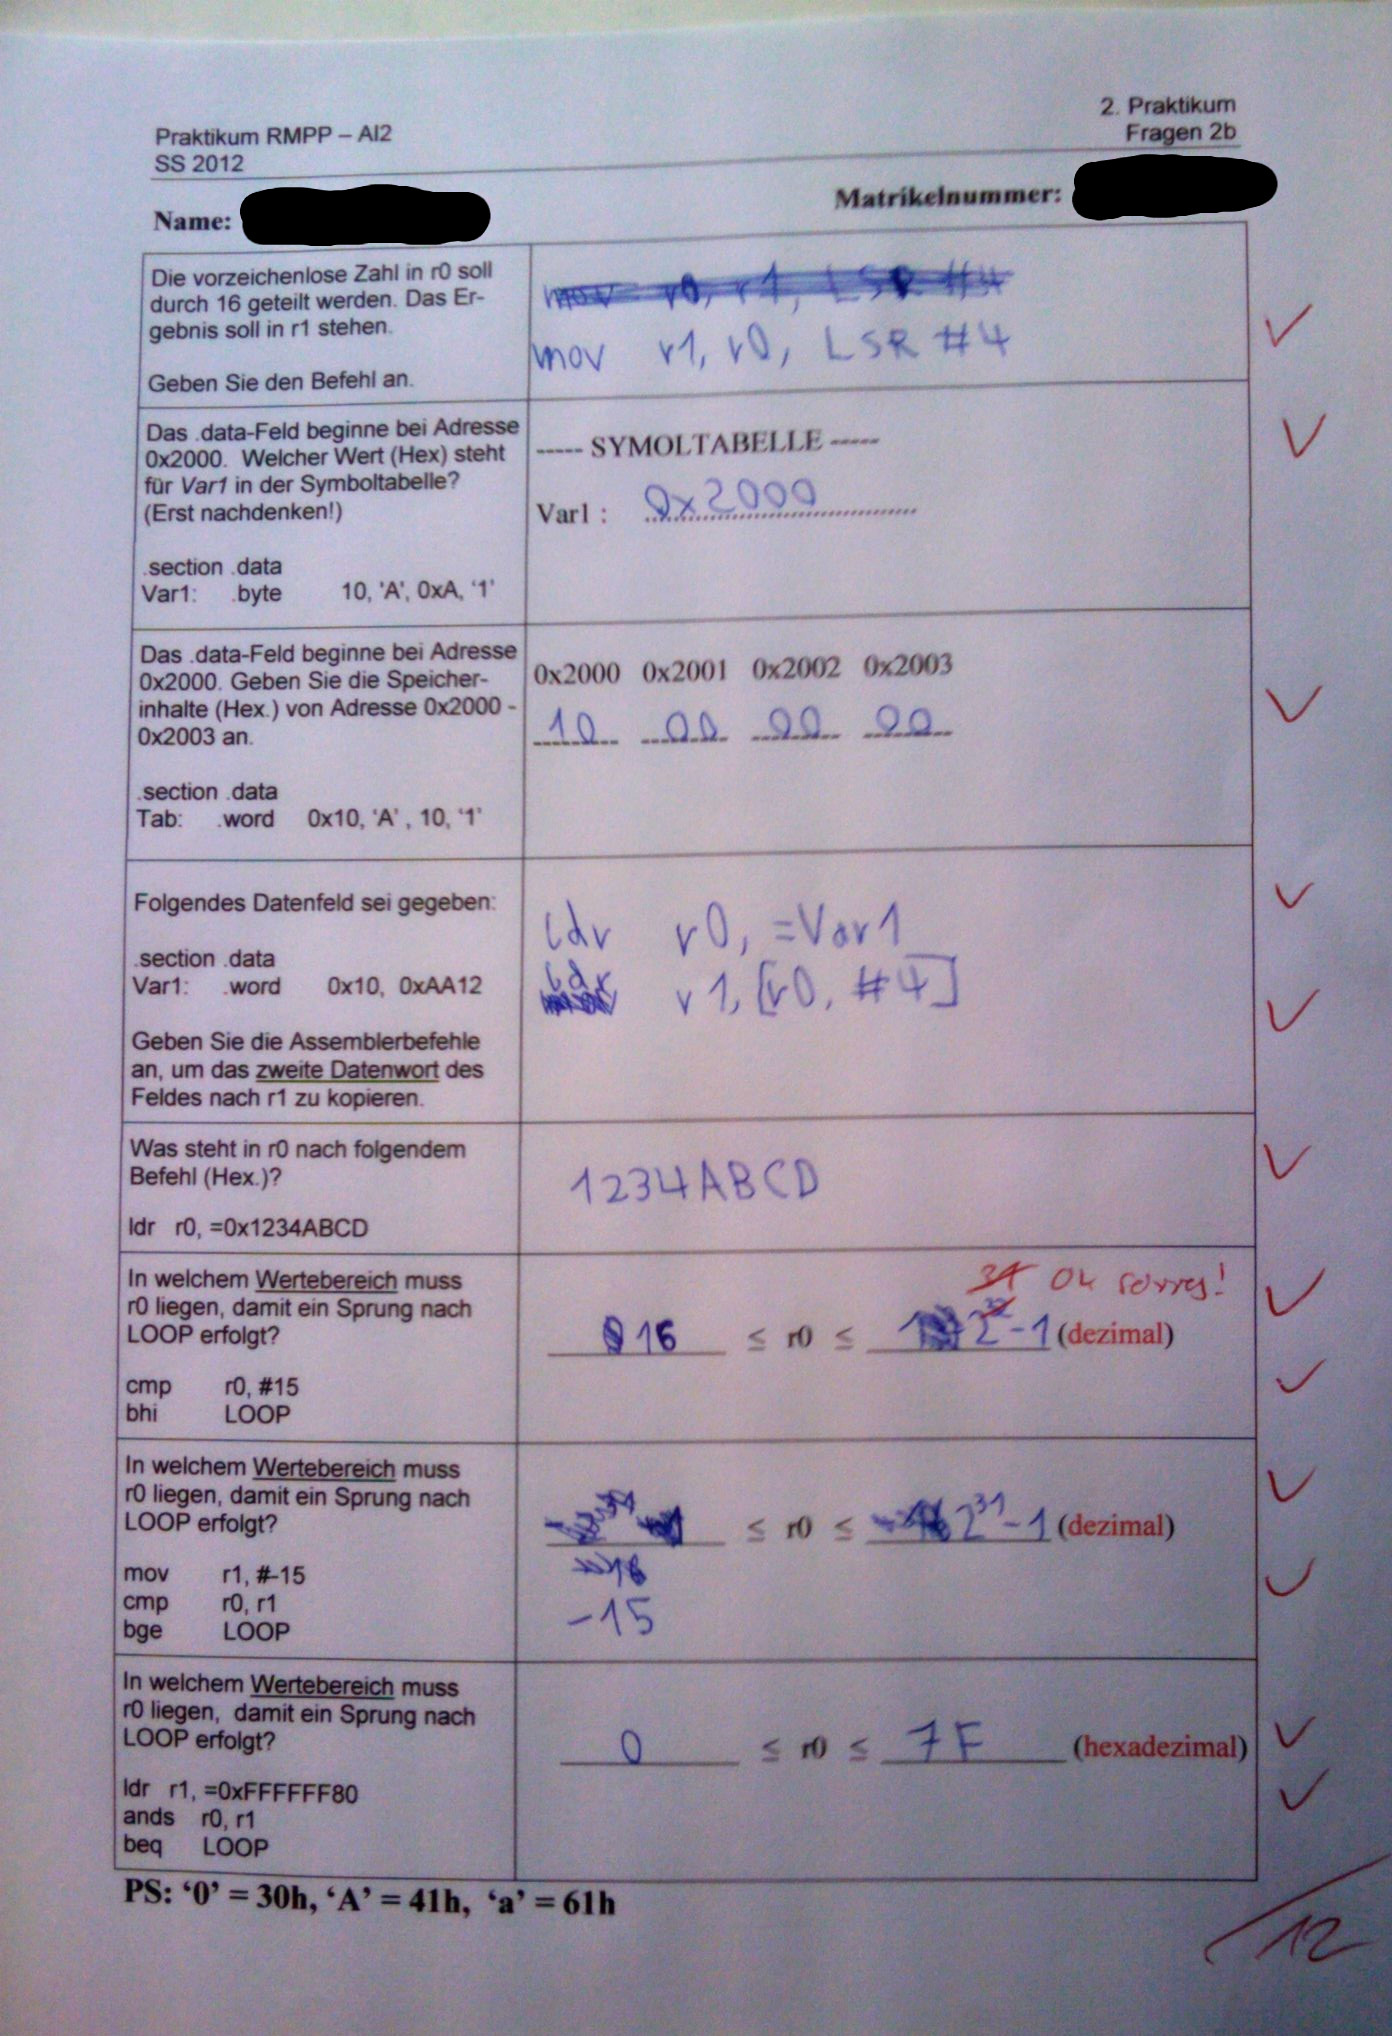 2. Praktikum
Praktikum RMPP – AI2
Fragen 2b
SS 2012
Matrikelnummer:
Name:
Die vorzeichenlose Zahl in r0 soll
durch 16 geteilt werden. Das Er-
gebnis soll in r1 stehen.
Geben Sie den Befehl an.
mov r0, r1, LSR #4
mov r1, r0, LSR #4
Das .data-Feld beginne bei Adresse
0x2000. Welcher Wert (Hex) steht
für Var1 in der Symboltabelle?
(Erst nachdenken!)
.section .data
Var1: .byte 10, 'A', 0xA, ‘1’
----- SYMOLTABELLE -----
Var1 : 0x2000
Das .data-Feld beginne bei Adresse
0x2000. Geben Sie die Speicher-
inhalte (Hex.) von Adresse 0x2000 -
0x2003 an.
.section .data
Tab: .word 0x10, ‘A’ , 10, ‘1’
0x2000 0x2001 0x2002 0x2003
10 00 00 00
Folgendes Datenfeld sei gegeben:
.section .data
Var1: .word 0x10, 0xAA12
Geben Sie die Assemblerbefehle
an, um das zweite Datenwort des
Feldes nach r1 zu kopieren.
ldr r0, =Var1
ldr r1, [r0, #4]
Was steht in r0 nach folgendem
Befehl (Hex.)?
ldr r0, =0x1234ABCD
1234ABCD
In welchem Wertebereich muss
r0 liegen, damit ein Sprung nach
LOOP erfolgt?
cmp r0, #15
bhi LOOP
31 Ok sorry!
16 ≤ r0 ≤ 2^32-1 (dezimal)
In welchem Wertebereich muss
r0 liegen, damit ein Sprung nach
LOOP erfolgt?
mov r1, #-15
cmp r0, r1
bge LOOP
≤ r0 ≤ 2^31-1 (dezimal)
-15
In welchem Wertebereich muss
r0 liegen, damit ein Sprung nach
LOOP erfolgt?
ldr r1, =0xFFFFFF80
ands r0, r1
beq LOOP
0 ≤ r0 ≤ 7F (hexadezimal)
PS: ‘0’ = 30h, ‘A’ = 41h, ‘a’ = 61h
/12